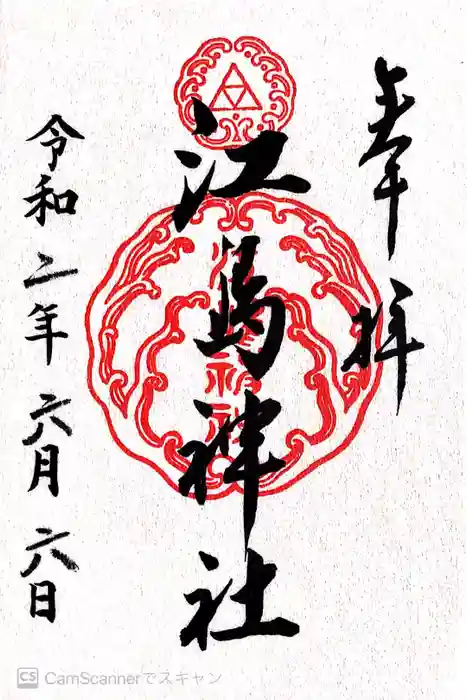 奉拝
江島神社
令和二年六月六日
CS CamScannerでスキャン